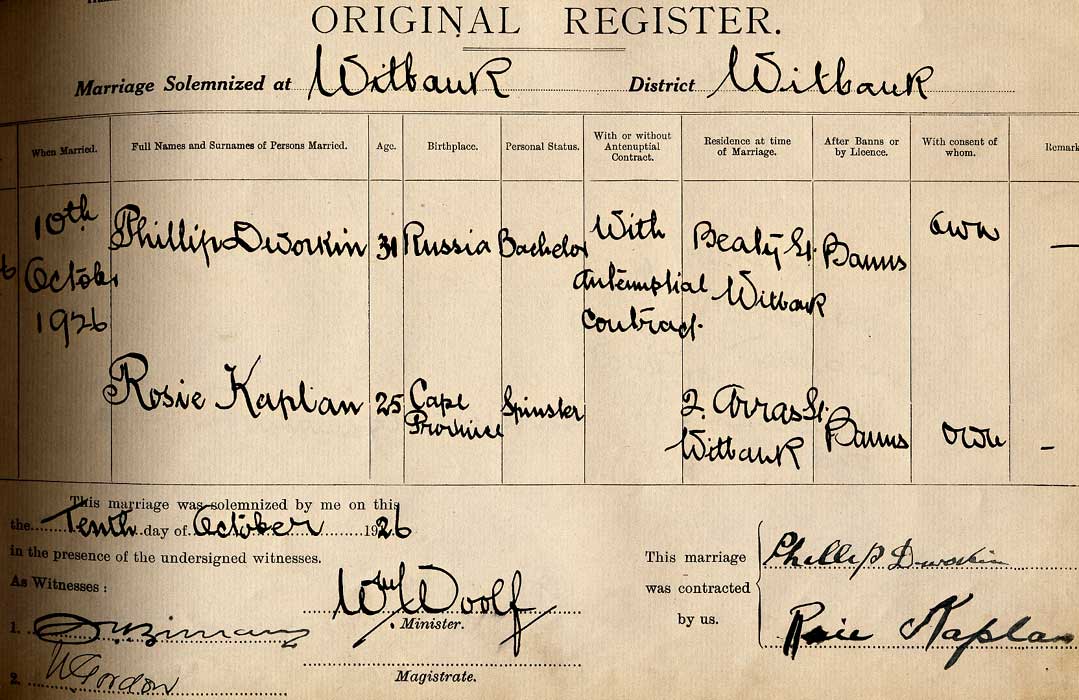 ORIGINAL REGISTER.
Marriage Solemnized at Witbank District Witbank
When Married. Full Names and Surnames of Persons Married. Age. Birthplace. Personal Status. With or without Antenuptial Contract. Residence at time of Marriage. After Banns or by Licence. With consent of whom. Remark
10th October 1926 Phillip Dworkin 31 Russia Bachelor With Antenuptial Contract. Beaty St. Witbank Banns own —
Rosie Kaplan 25 Cape Province Spinster 2. Arras St. Witbank Banns own -
This marriage was solemnized by me on this
the Tenth day of October 1926
in the presence of the undersigned witnesses.
As Witnesses :
1.
2. Gordon
Wm Woolf
Minister.
Magistrate.
This marriage was contracted by us.
Phillip Dworkin
Rosie Kaplan